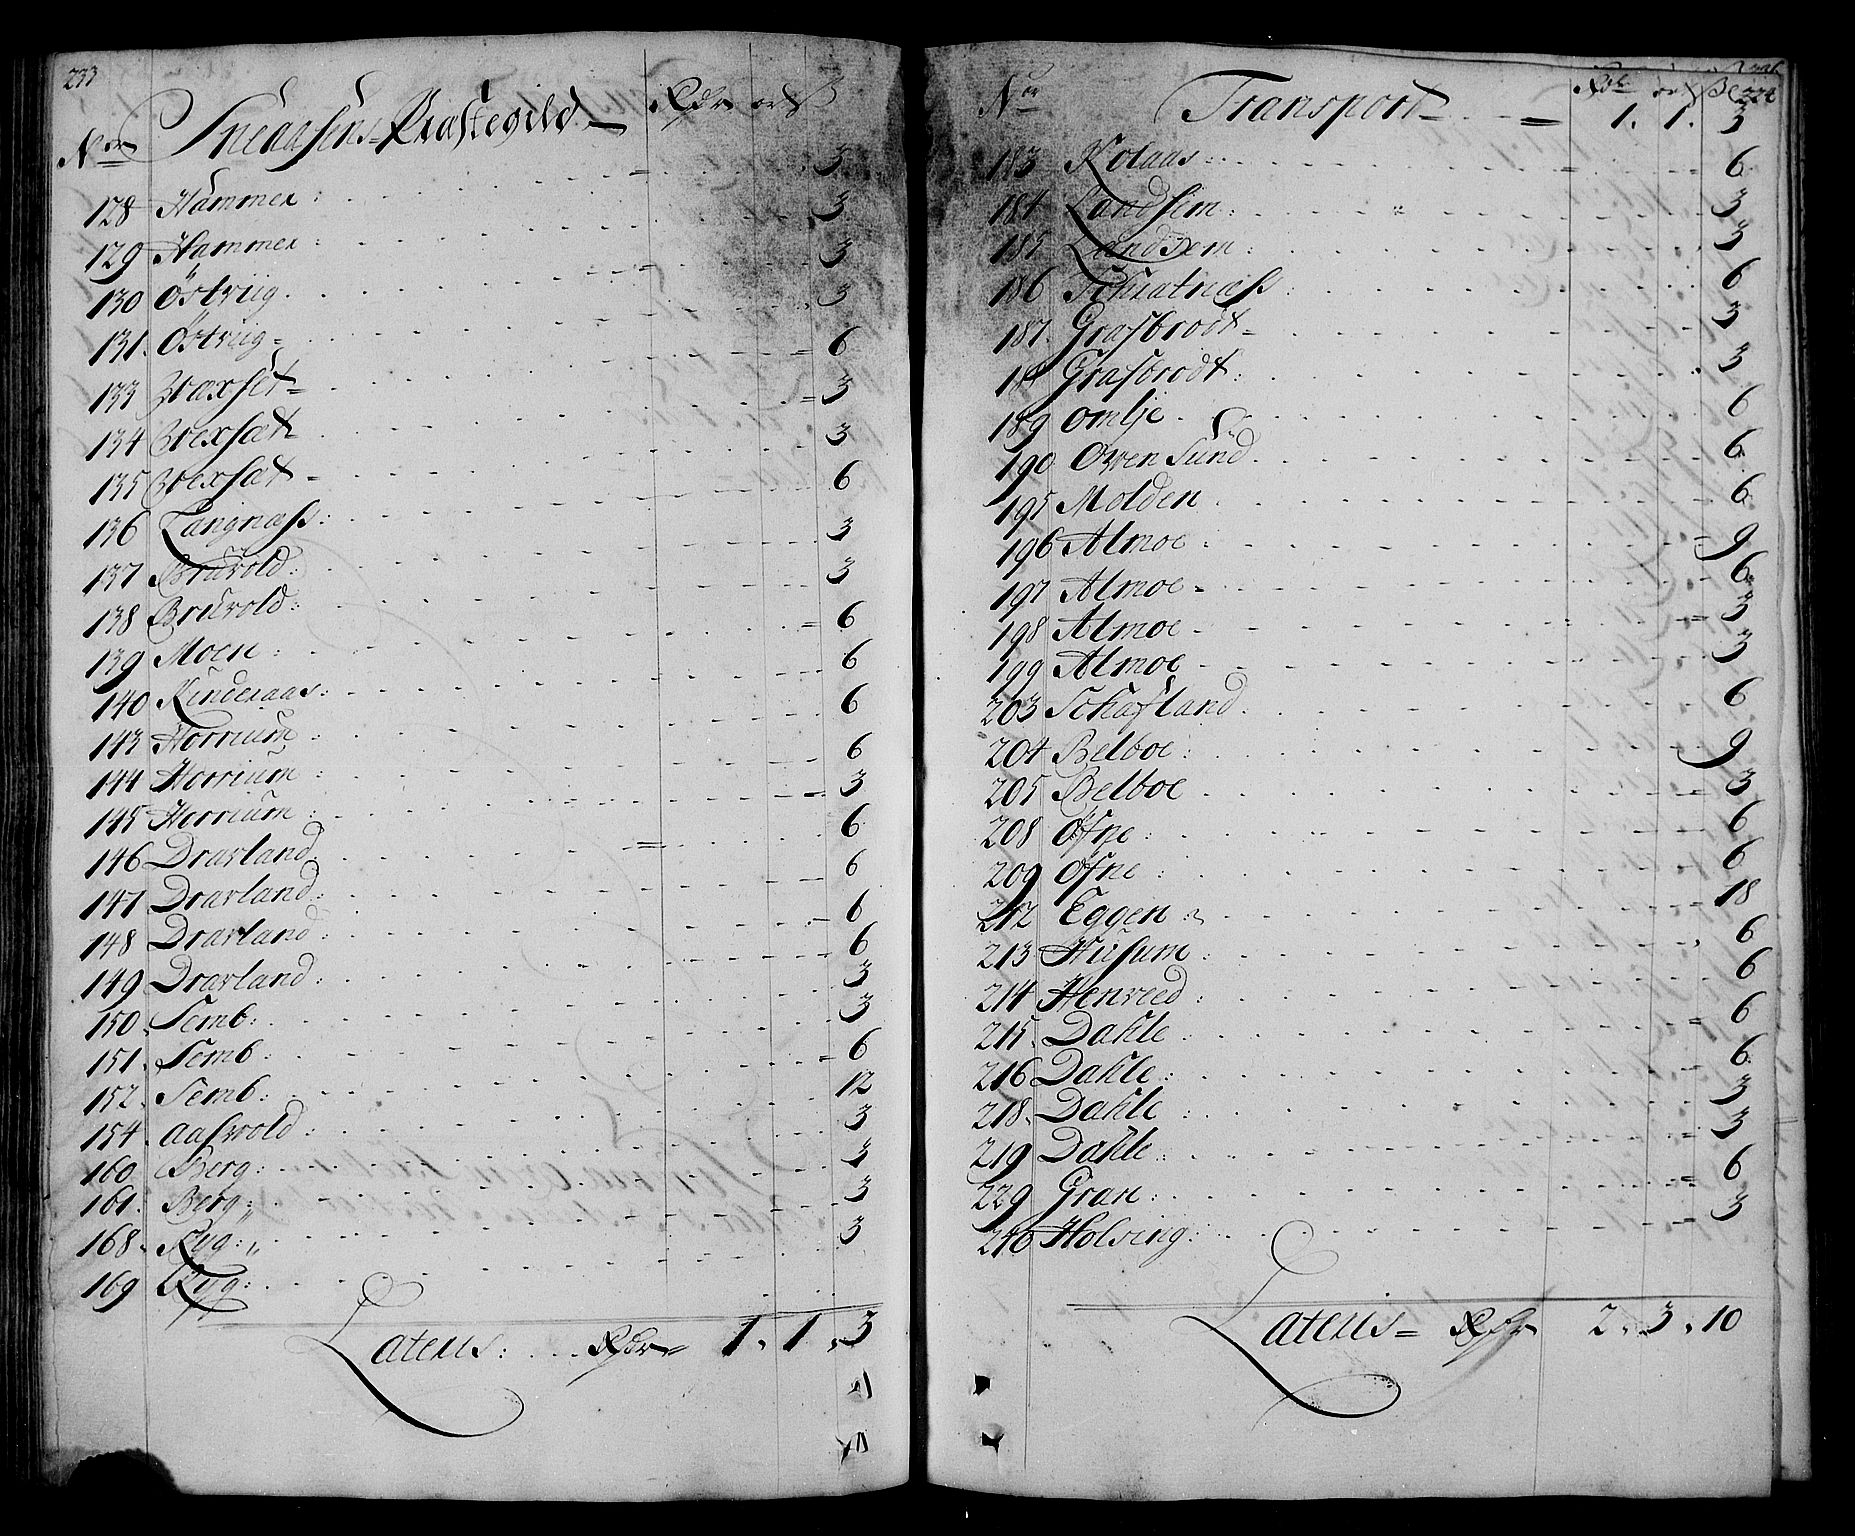 233
Nor Sneaasens Præstegild Rdr ort ß
128 Hammer : 3
129 Hammer : 3
130 Östviig 3
131. Östviig 3
133 Braxset 6
134 Brexsæt 3
135 Brexsæt 3
136 Langnæss : 6
137 Brüvold : 3
138 Brüvold : 3
139 Moen : 6
140 Kinderaas : 6
143 Horrium 6
144 Horrium : 6
145 Horrium : 3
146 Dravland 6
147 Dravland : 6
148 Dravland : 6
149 Dravland : 6
150. Semb : 3
151. Semb : 3
152. Semb : 6
154. Aasvold : 12
160 Berg : 3
161. Berg : 3
168. Ryg : 3
169 Ryg : 3
Lateris : Rdr 1. 1. 3
Nor Transport Rdr ort ß
1. 1. 3
183 Kolaas 6
184 Landsem : 3
185 Landsem : 3
186 Schiatnæss : 6
187. Grasbrodt 3
Grasbrodt : 3
189 Omlje 6
190 Oven Sünd 6
195 Molden 6
196 Almoe 9
197 Almoe 6
198 Almoe 3
199 Almoe 3
203 Schafland 6
204 Belboe : 9
205 Belboe 3
208 Öfne : 6
209 Öfne : 6
212 Eggen 18
213 Hüsum 6
214 Henveed : 6
215 Dahle 6
216 Dahle : 6
218. Dahle : 3
219 Dahle 3
229 Gran : 6
Holsing : 3
Lateris Rdr 2. 3. 10